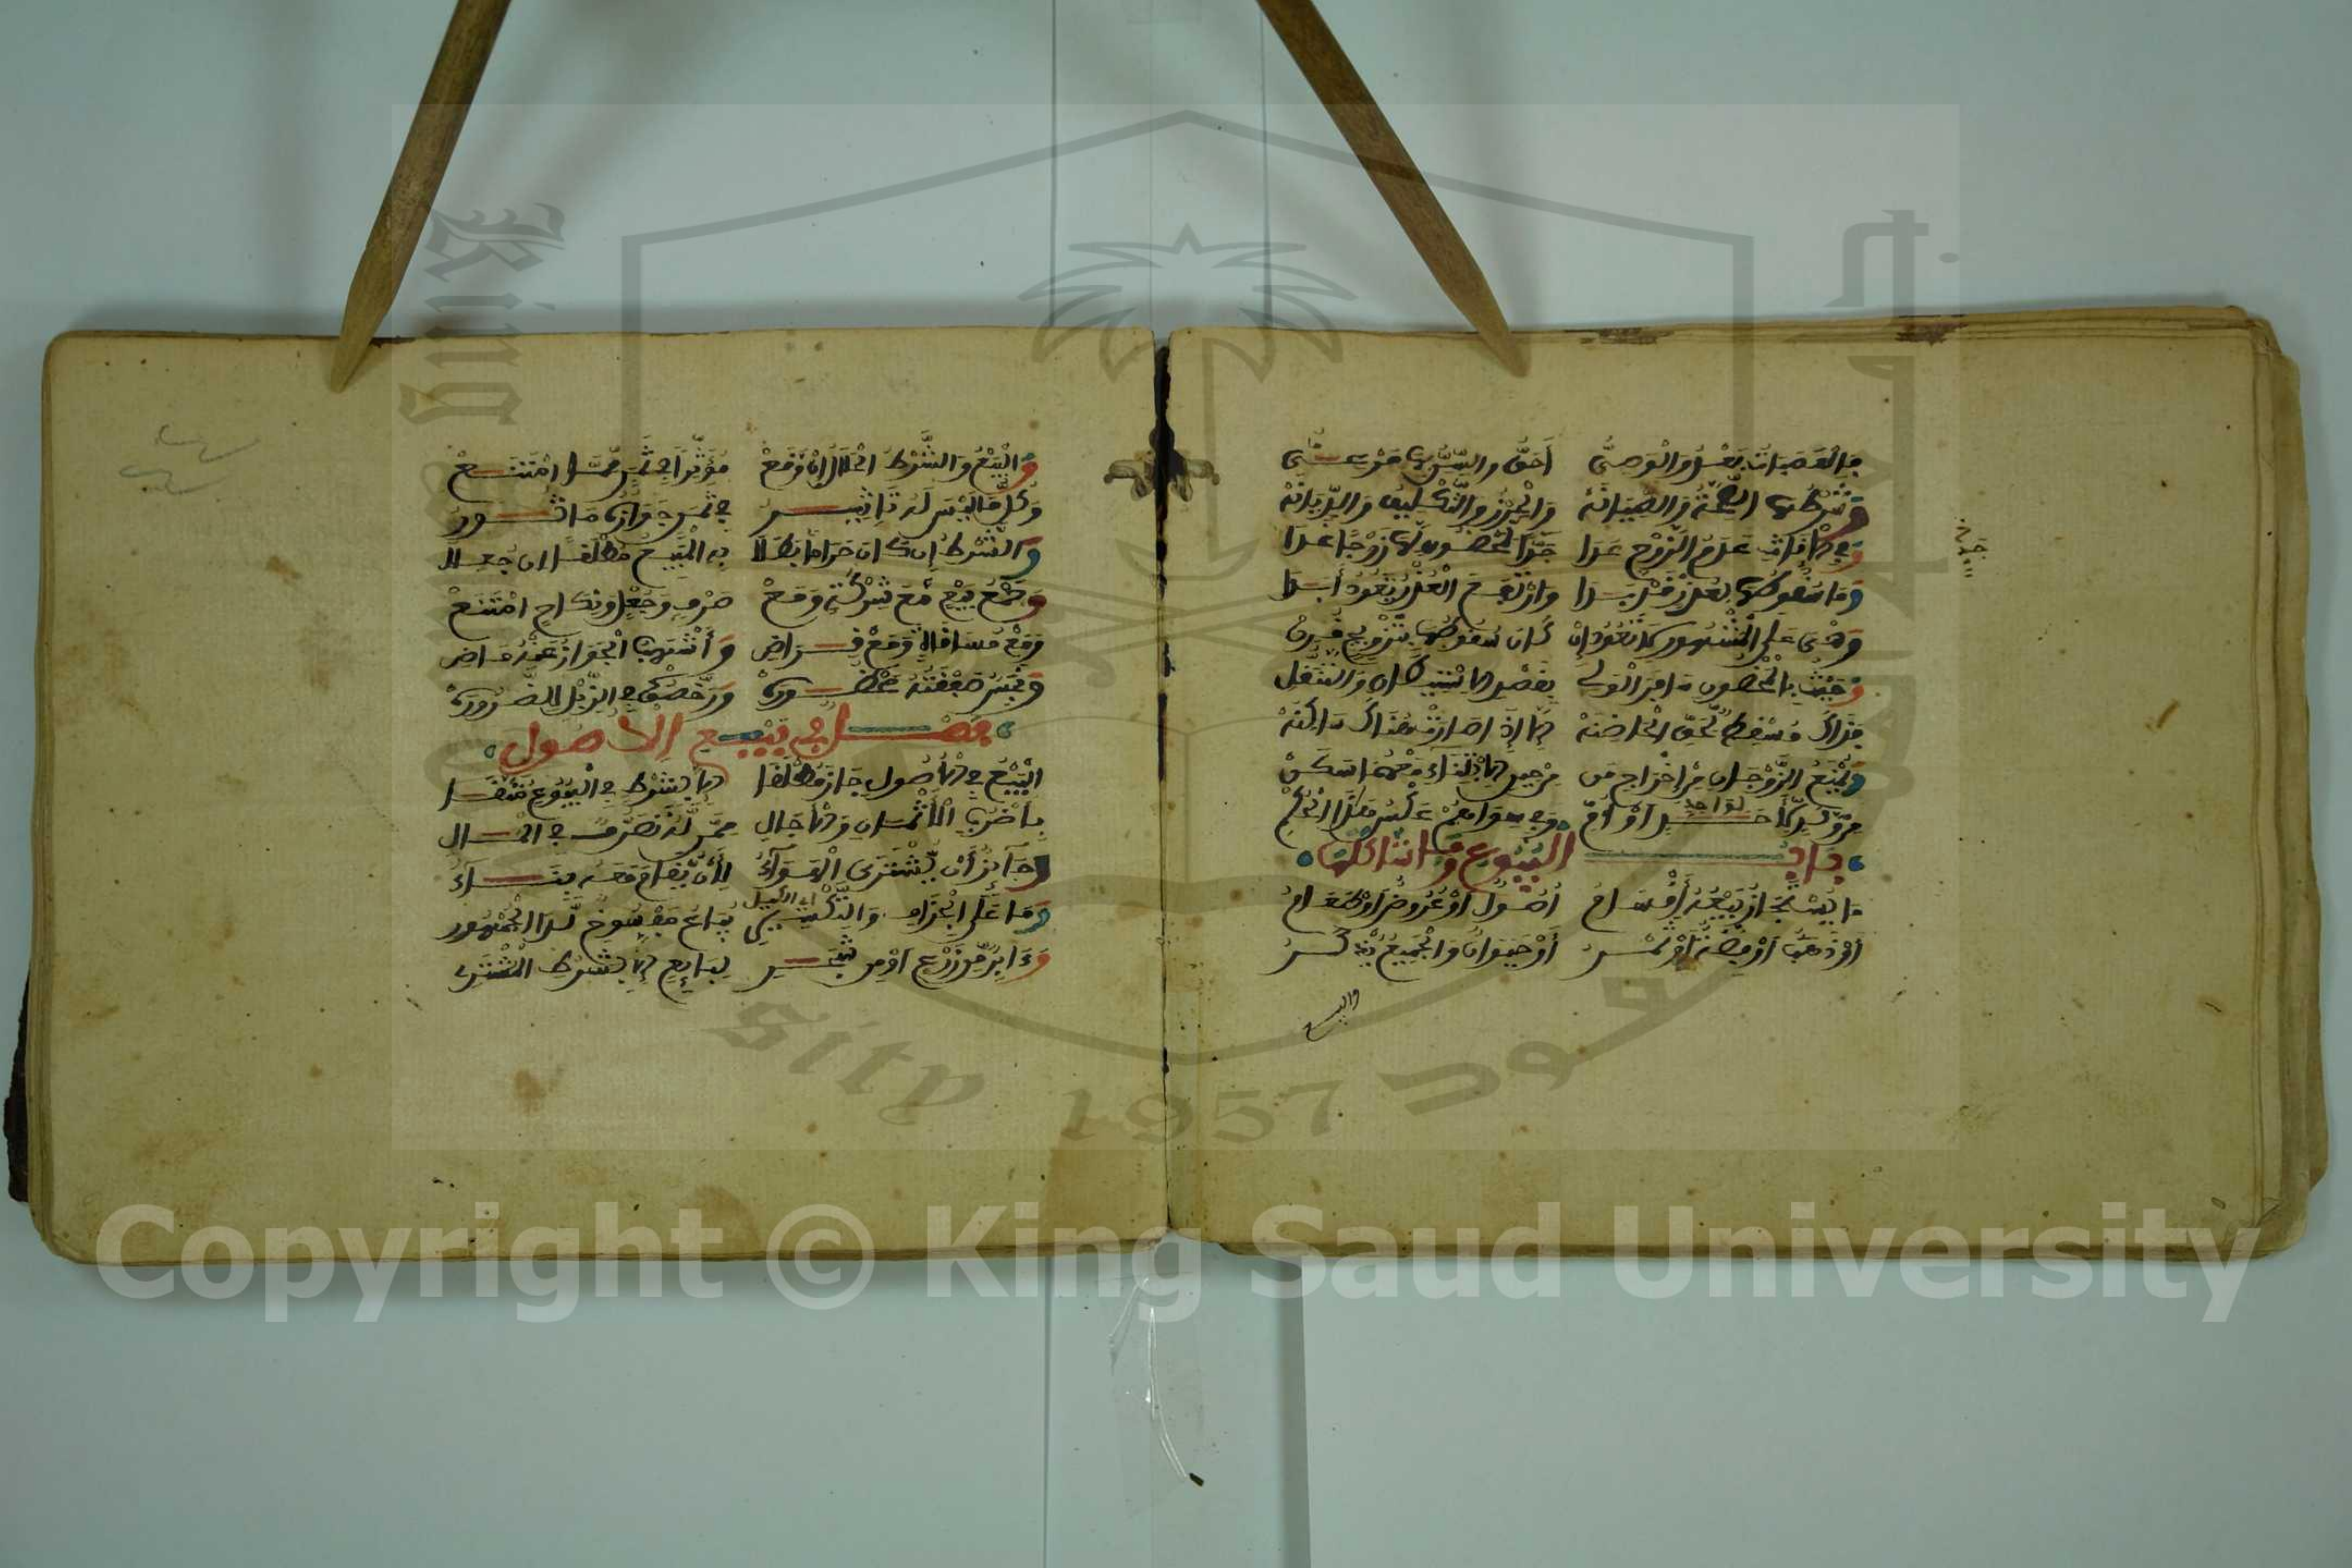 فالعصبات بعد والوصي أحق والسن بها مرعي
وشرطها الصحة والصيانه والحرز والتكليف والديانه
وفي الاناث عدم الزوج عدا جدا لمحضون لها زوجا غدا
وما سقوطها بعذر قد بدا وارتفع العذر تعود أبدا
وهي على المشهور لا تعود إن كان سقوطها بتزويج قمن
وحيث بالمحضون سافر الولي بقصد الاستيطان والتنقل
فذاك مسقط لحق الحاضنه إلا إذا صارت هناك ساكنه
ويمنع الزوجان من إخراج من من حين الابتناء معهما سكن
من ولد لأحد أو أم وفي سواهم عكس هذا الحكم
لواحد
باب البيوع وما شاكلها
ما يستجاز بيعه أقسام أصول أو عروض أو طعام
أو ذهب أو فضة أو ثمر أو حيوان والجميع يذكر
والبيع
والبيع والشرط الحلال إن وقع مؤثرا في ثمن مما امتنع
وكل ما ليس له تاثير في ثمن جوازه ماثور
والشرط إن كان حراما بطلا به المبيع مطلقا ان جعلا
وجمع بيع مع شركة ومع صرف وجعل ونكاح امتنع
ومع مساقاة ومع قراض وأشهب الجواز عنه ماض
ونجس صفقته محظوره ورخصوا في الزبل للضروره
فصل في بيع الأصول
البيع في الأصول جاز مطلقا إلا بشرط في البيوع متقى
بأضرب الأثمان والآجال ممن له تصرف في المال
وجائز أن يشترى الهواء لأن يقام معه بناء
وما على الجزاف والتكسير يباع مفسوخ لدى الجمهور
وءابر من زرع أو من شجر لبايع إلا بشرط المشتري
Copyright © King Saud University
sity 1957